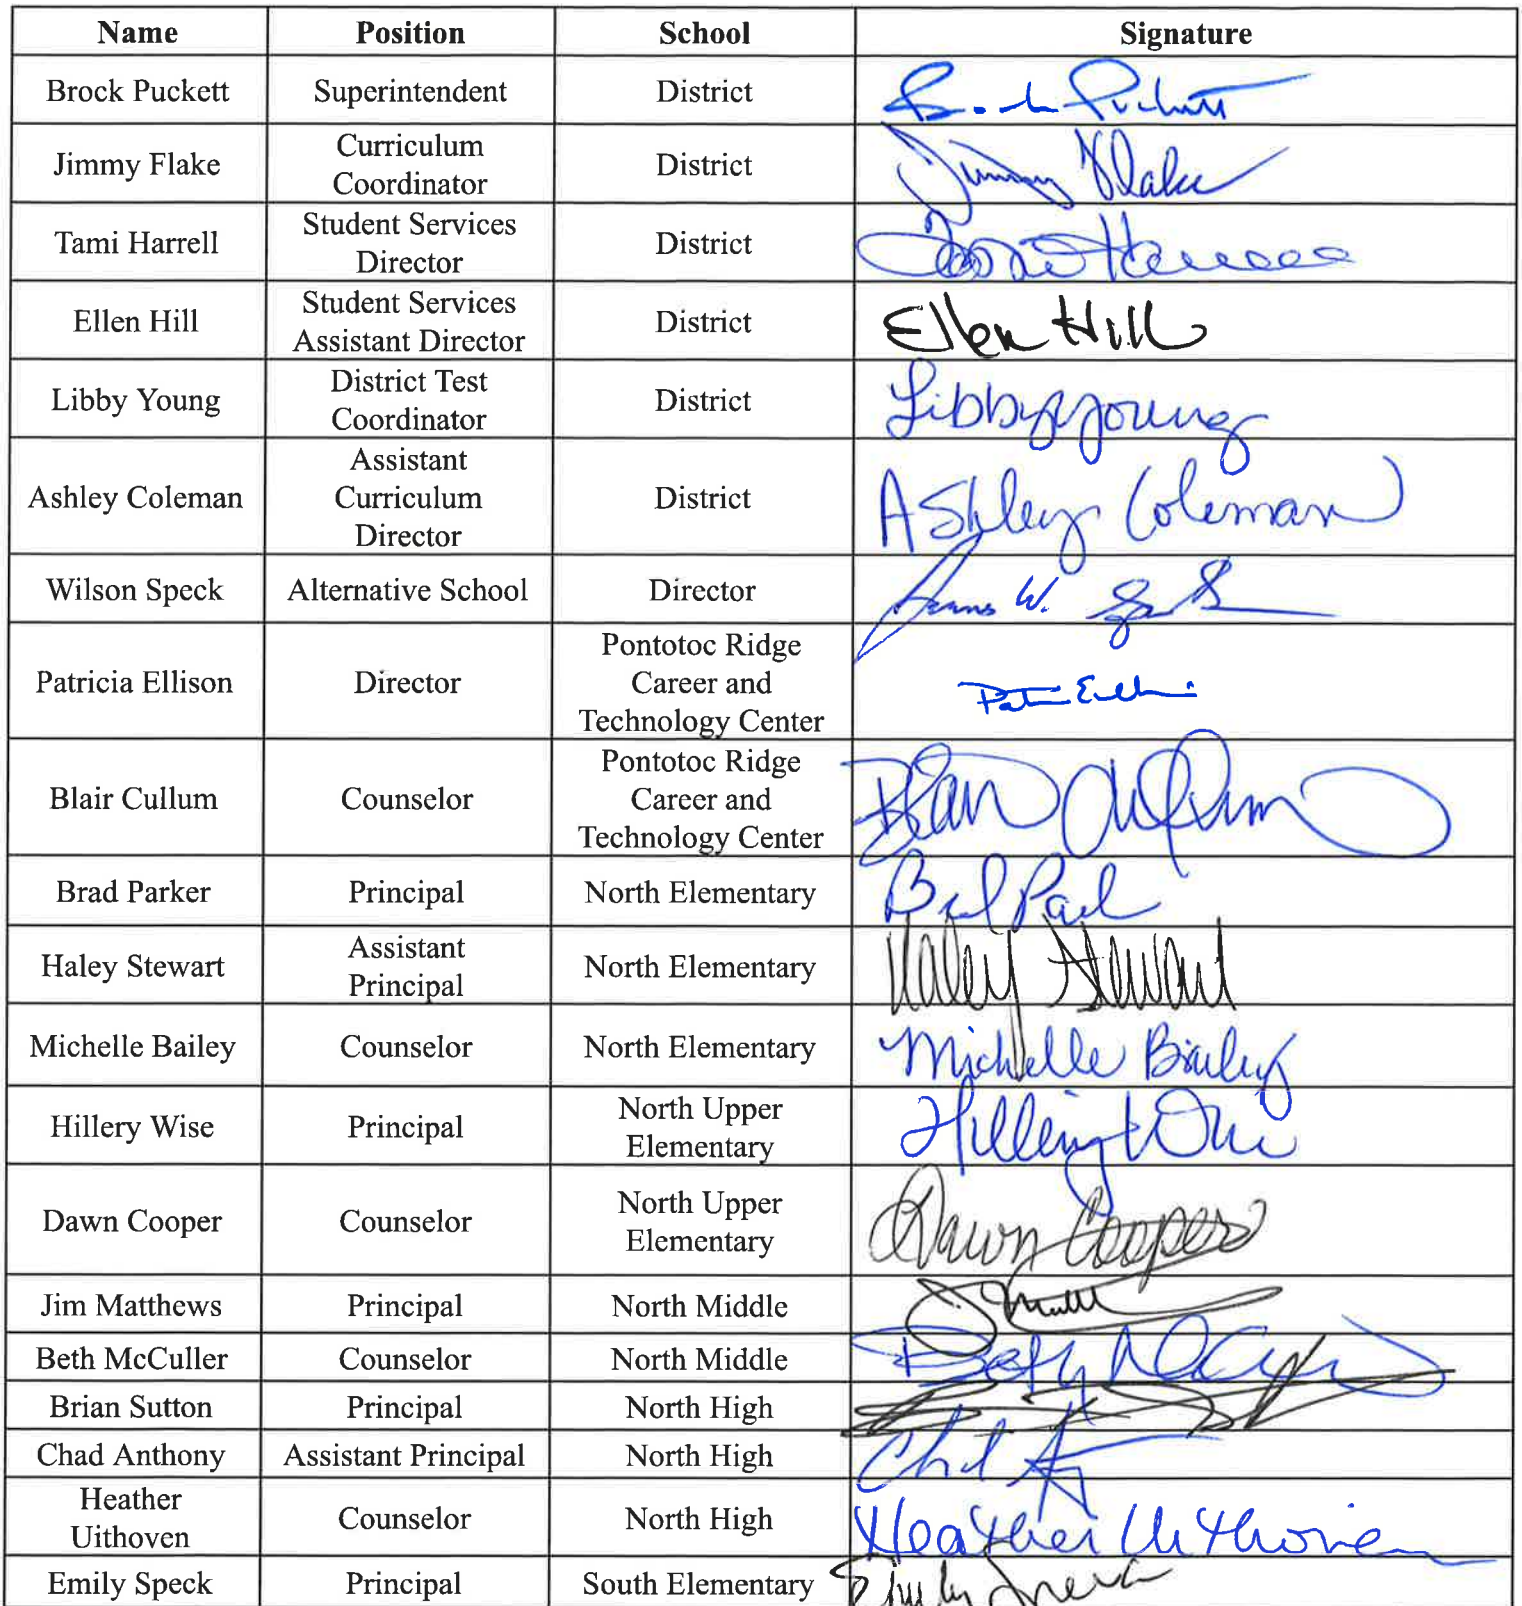 Name Position School Signature
Brock Puckett Superintendent District
Jimmy Flake Curriculum Coordinator District Jimmy Flake
Tami Harrell Student Services Director District
Ellen Hill Student Services Assistant Director District Ellen Hill
Libby Young District Test Coordinator District Libby Young
Ashley Coleman Assistant Curriculum Director District Ashley Coleman
Wilson Speck Alternative School Director
Patricia Ellison Director Pontotoc Ridge Career and Technology Center
Blair Cullum Counselor Pontotoc Ridge Career and Technology Center
Brad Parker Principal North Elementary
Haley Stewart Assistant Principal North Elementary Haley Stewart
Michelle Bailey Counselor North Elementary Michelle Bailey
Hillery Wise Principal North Upper Elementary
Dawn Cooper Counselor North Upper Elementary Dawn Cooper
Jim Matthews Principal North Middle
Beth McCuller Counselor North Middle
Brian Sutton Principal North High
Chad Anthony Assistant Principal North High
Heather Uithoven Counselor North High Heather Uithoven
Emily Speck Principal South Elementary